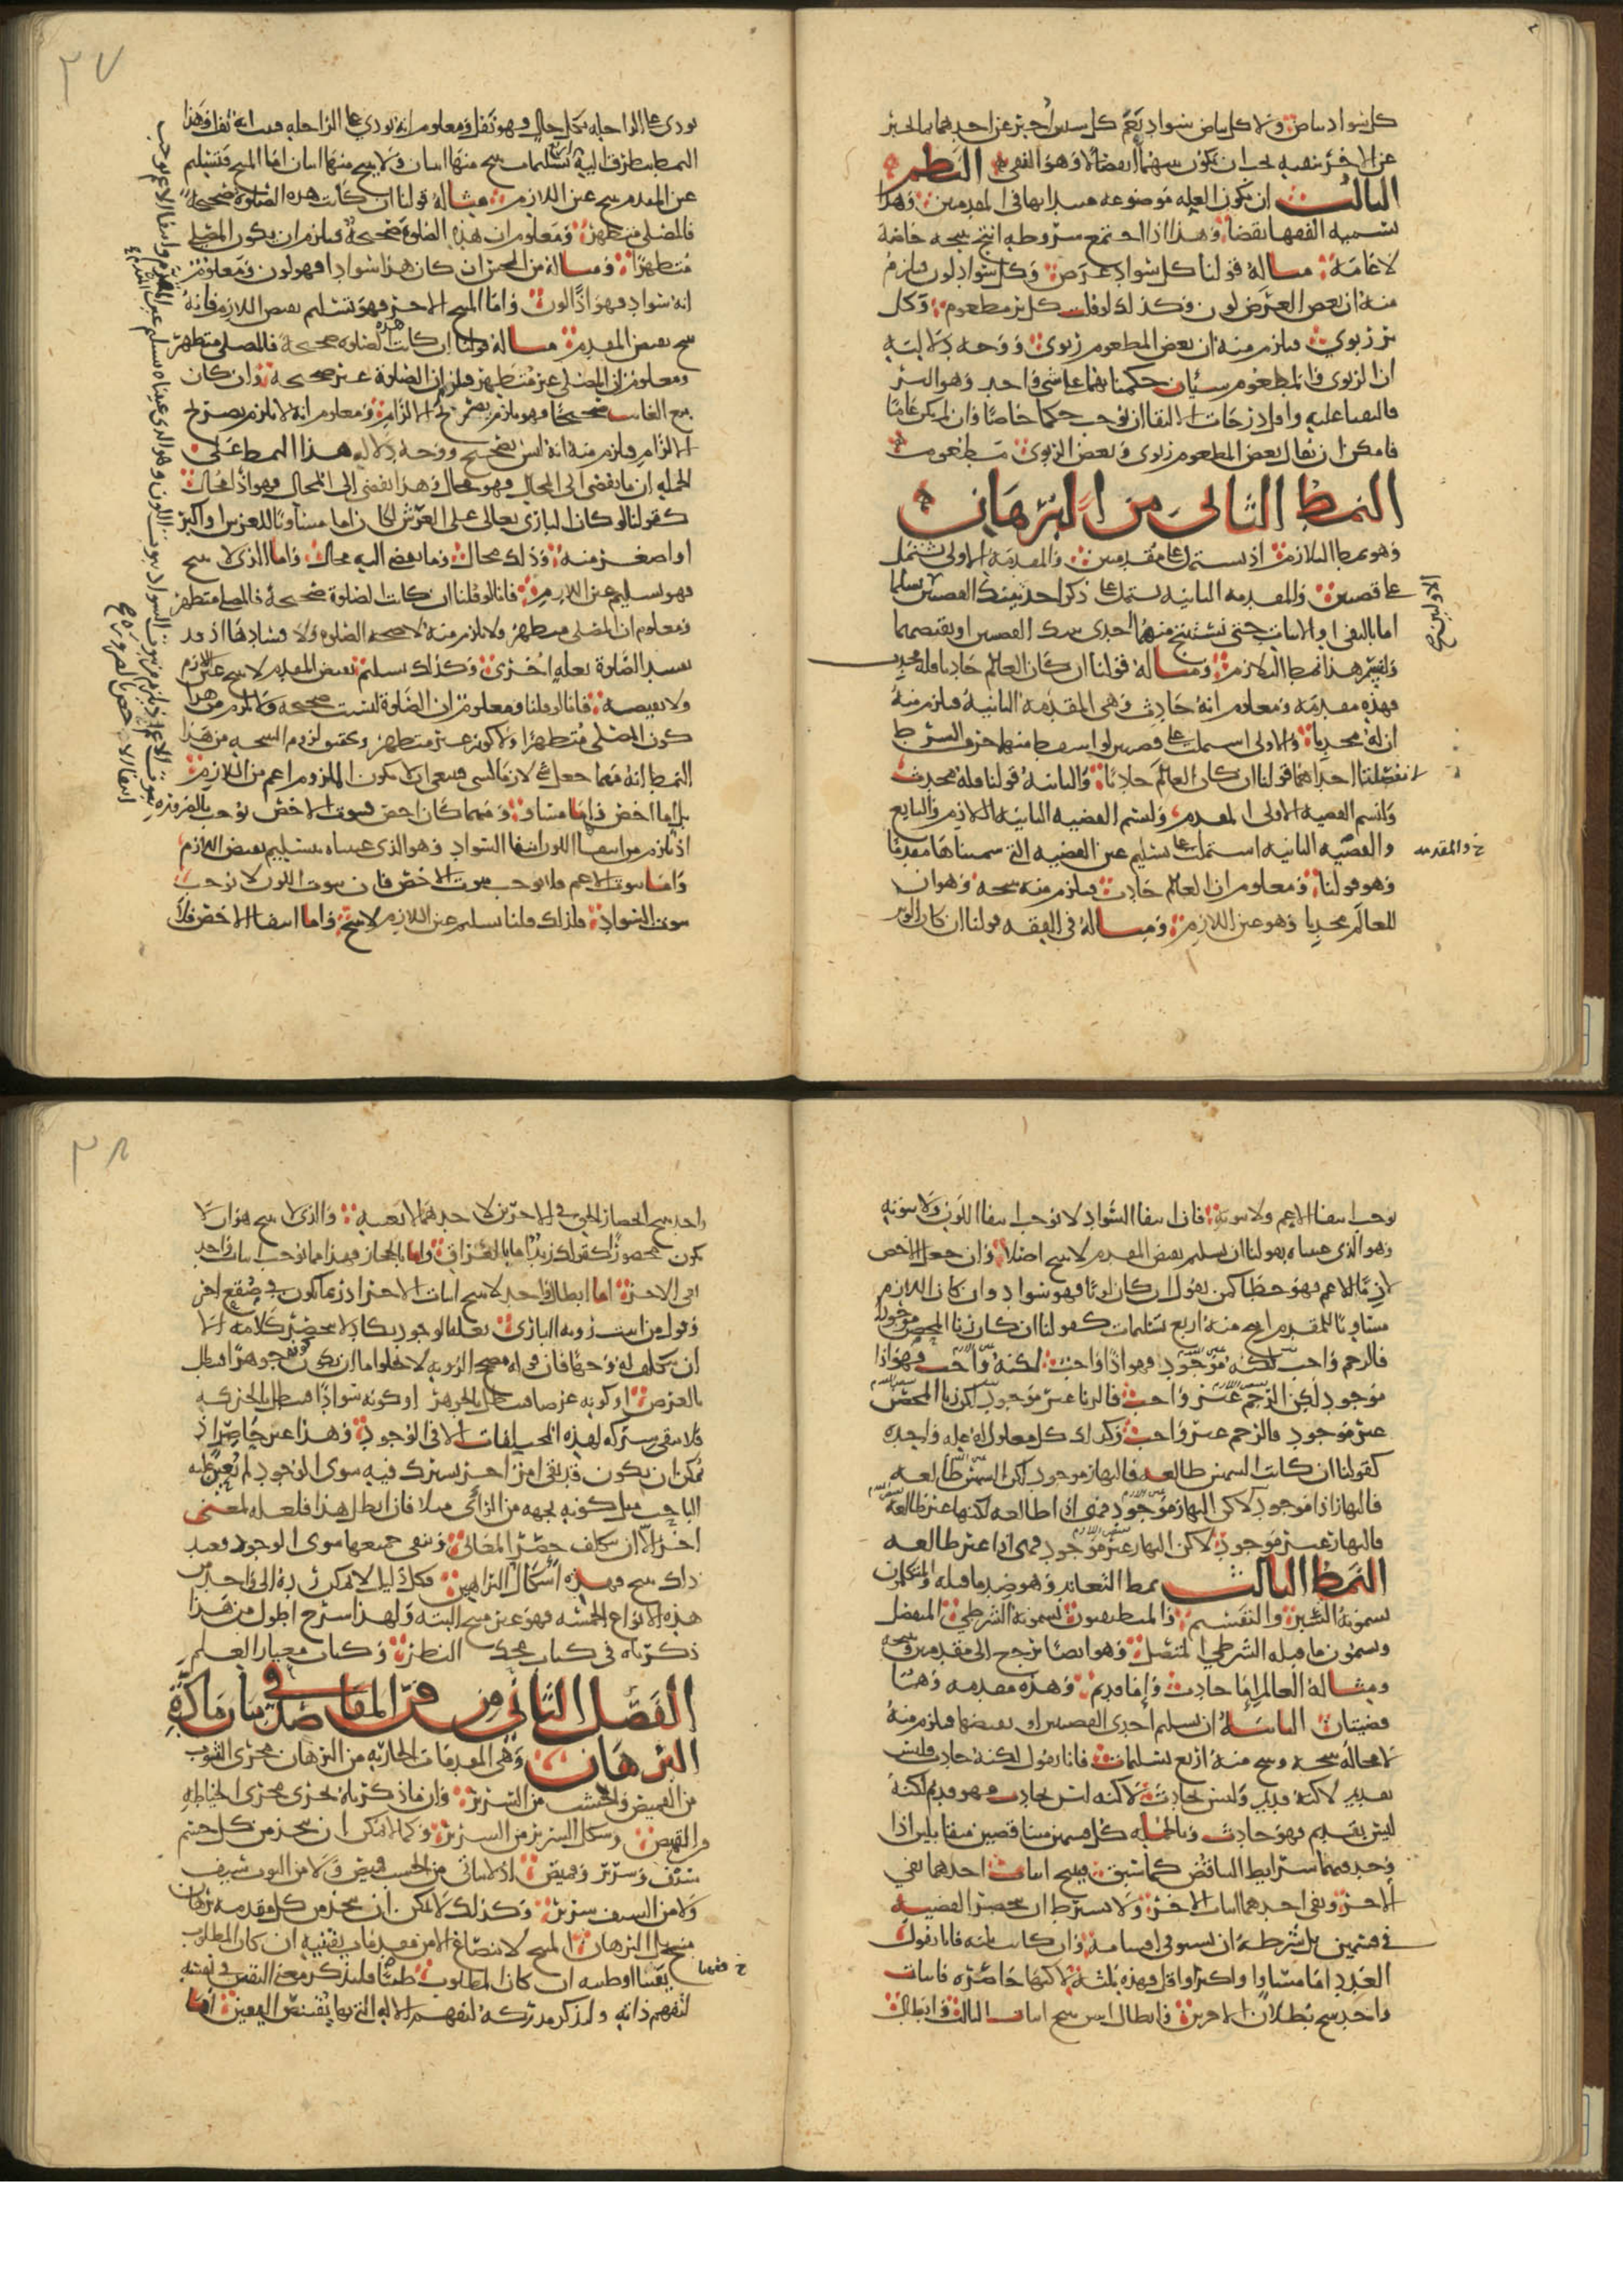 كل سواد بياض ولا كل بياض سواد نعم كل شيئين اخبر عن احدهما بما يخبر
عن الاخر بنفيه يجب ان يكون بينهما انفصالا وهو النفي النظم
الثالث ان تكون العلة موضوعة مبتدا بها في المقدمتين وهذا
تسميه الفقها نقضا وهذا اذا اجتمع شروطه انتج نتيجة خاصة
لا عامة مثاله قولنا كل سواد عرض وكل سواد لون فيلزم
منه ان بعض العرض لون وكذلك لو قلت كل بر مطعوم وكل
بر ربوي فيلزم منه ان بعض المطعوم ربوي ووجه دلالته
ان الربوي والمطعوم شيئان حكمنا بهما على شي واحد وهو البر
فالتقيا عليه واقل درجات الالتقا ان يوجب حكما خاصا وان لم يكن عاما
فامكن ان يقال بعض المطعوم ربوي وبعض الربوي مطعوم
النمط الثاني من البرهان
وهو نمط التلازم اذ يشتمل على مقدمتين والمقدمة الاولى تشتمل
على قضيتين والمقدمة الثانية تشتمل على ذكر احد تينك القضيتين تسليما
اما بالنفي او الاثبات حتى تستنتج منهما احدى تينك القضيتين او نقيضهما
ولنسم هذا نمط التلازم ومثاله قولنا ان كان العالم حادثا فله محدث
فهذه مقدمة ومعلوم انه حادث وهي المقدمة الثانية فيلزم منه
ان له محدثا والاولى اشتملت على قضيتين لو اسقط منهما حرف الشرط
لانفصلتا احداهما قولنا ان كان العالم حادثا والثانية قولنا فله محدث
ولنسم القضية الاولى المقدم ولنسم القضية الثانية اللازم والتابع
والقضية الثانية اشتملت على تسليم عين القضية التي سميناها مقدما
وهو قولنا ومعلوم ان العالم حادث فيلزم منه نتيجة وهو ان
للعالم محدثا وهو عين اللازم ومثاله في الفقه قولنا ان كان الوتر
الاوليين صح
خ والمقدمة
٣٧
يودى على الراحلة بكل حال فهو نفل ومعلوم انه يودى على الراحلة فثبت انه نفل وهذا
النمط يتطرق اليه اربع تسليمات ينتج منها اثنان ولا ينتج منها اثنان اما المنتج فتسليم
عين المقدم ينتج عين اللازم مثاله قولنا ان كانت هذه الصلوة صحيحة
فالمصلي متطهر ومعلوم ان هذه الصلوة صحيحة فيلزم ان يكون المصلي
متطهرا ومثاله من الحس ان كان هذا سوادا فهو لون ومعلوم
انه سواد فهو اذا لون واما المنتج الاخر فهو تسليم نقيض اللازم فانه
ينتج نقيض المقدم مثاله قولنا ان كانت هذه الصلوة صحيحة فالمصلي متطهر
ومعلوم ان المصلي غير متطهر فيلزم ان الصلوة غير صحيحة وان كان
بيع الغائب صحيحا فهو يلزم بصريح الالزام ومعلوم انه لا يلزم بصريح
الالزام فيلزم منه انه ليس بصحيح ووجه دلالة هذا النمط على
الجملة ان ما يفضي الى المحال فهو محال وهذا يفضي الى المحال فهو اذا محال
كقولنا لو كان الباري تعالى على العرش لكان اما مساويا للعرش او اكبر
او اصغر منه وذلك محال وما يفضي اليه محال واما الذي لا ينتج
فهو تسليم عين اللازم فانا لو قلنا ان كانت الصلوة صحيحة فالمصلي متطهر
ومعلوم ان المصلي متطهر ولا يلزم منه لا صحة الصلوة ولا فسادها اذ قد
تفسد الصلوة بعلة اخرى وكذلك تسليم نقيض المقدم لا ينتج عين اللازم
ولا نقيضه فانا لو قلنا ومعلوم ان الصلوة ليست صحيحة ولا يلزم من هذا
كون المصلي متطهرا ولا كونه غير متطهر وتحقيق لزوم النتيجة من هذا
النمط انه مهما جعل شي لازما لشي فينبغي ان لا يكون الملزوم اعم من اللازم
بل اما اخص واما مساو ومهما كان اخص فثبوت الاخص يوجب بالضرورة
اذ يلزم من انتفا اللون انتفا السواد وهو الذي عنيناه بتسليم نقيض اللازم
واما ثبوت الاعم فلا يوجب ثبوت الاخص فان ثبوت اللون لا يوجب
ثبوت السواد فلذلك قلنا تسليم عين اللازم لا ينتج واما انتفا الاخص فلا
٣٨
يوجب انتفا الاعم ولا ثبوته فان انتفا السواد لا يوجب انتفا اللون ولا ثبوته
وهو الذي عنيناه بقولنا ان تسليم نقيض المقدم لا ينتج اصلا وان جعل الاخص
لازما للاعم فهو خطا كمن يقول ان كان لونا فهو سواد وان كان اللازم
مساويا للمقدم انتج منه اربع تسليمات كقولنا ان كان زنا المحصن موجودا
فالرجم واجب لكنه موجود فهو اذا واجب لكنه واجب فهو اذا
موجود لكن الرجم غير واجب فالزنا غير موجود لكن زنا المحصن
غير موجود فالرجم غير واجب وكذلك كل معلول له علة واحدة
كقولنا ان كانت الشمس طالعة فالنهار موجود لكن الشمس طالعة
فالنهار اذا موجود لكن النهار موجود فهي اذا طالعة لكنها غير طالعة
فالنهار غير موجود لكن النهار غير موجود فهي اذا غير طالعة
النمط الثالث نمط التعاند وهو ضد ما قبله والمتكلمون
يسمونه السبر والتقسيم والمنطقيون يسمونه الشرطي المنفصل
ويسمون ما قبله الشرطي المتصل وهو ايضا يرجع الى مقدمتين ونتيجة
ومثاله العالم اما حادث واما قديم وهذه مقدمة وهما
قضيتان الثانية ان تسلم احدى القضيتين او نقيضها فيلزم منه
لا محالة نتيجة وينتج منه اربع تسليمات فانا نقول لكنه حادث فليس
بقديم لكنه قديم وليس بحادث لكنه ليس بحادث فهو قديم لكنه
ليس بقديم فهو حادث وبالجملة كل قسمين متناقضين متقابلين اذا
وجد فيهما شرايط التناقض كما سبق فينتج اثبات احدهما نفي
الاخر ونفي احدهما اثبات الاخر ولا يشترط ان تنحصر القضية
في قسمين بل شرطه ان تستوفي اقسامه فان كانت ثلثة فانا نقول
العدد اما مساو او اكثر او اقل فهذه ثلثة لكنها حاصرة فاثبات
واحد ينتج بطلان الاخرين وابطال اثنين ينتج اثبات الثالث وابطال
واحد ينتج انحصار الحق في الاخرين لا احدهما لا بعينه والذي لا ينتج هو ان لا
يكون محصورا كقولك زيد اما بالعراق واما بالحجاز فهذا مما يوجب اثبات واحد
نفي الاخر اما ابطال واحد لا ينتج اثبات الاخر اذ ربما يكون في صقع اخر
وقول من اثبت روية الباري بعلة الوجود يكاد لا ينحصر كلامه الا
ان يتكلف له وجها فان قوله مصحح الروية لا يخلو اما ان يكون كونه جوهرا فبطل
بالعرض او كونه عرضا فبطل بالجوهر او كونه سوادا فبطل بالحركة
فلا تبقى شركة لهذه المختلفات الا في الوجود وهذا غير حاصر اذ
يمكن ان يكون قد بقي امر اخر مشترك فيه سوى الوجود لم يعثر عليه
الباحث مثل كونه بجهة من الرائي مثلا فان ابطل هذا فلعله لمعنى
اخر الا ان يتكلف حصر المعاني وينفي جميعها سوى الوجود فعند
ذلك ينتج فهذه اشكال البراهين فكل دليل لا يمكن رده الى واحد من
هذه الانواع الخمسة فهو غير منتج البتة ولهذا شرح اطول من هذا
ذكرناه في كتاب محك النظر وكتاب معيار العلم
الفصل الثاني من فن المقاصد في بيان مادة
البرهان وهي المقدمات الجارية من البرهان مجرى الثوب
من القميص والخشب من السرير وان ما ذكرناه يجري مجرى الخياطة
من القميص وشكل السرير من السرير وكما لا يمكن ان يتخذ من كل جسم
سيف وسرير وقميص اذ لا يتاتى من الخشب قميص ولا من الثوب سيف
ولا من السيف سرير وكذلك لا يمكن ان يتخذ من كل مقدمة برهان
منتج بل البرهان المنتج لا ينصاغ الا من مقدمات يقينية ان كان المطلوب
يقينا او ظنية ان كان المطلوب ظنيا فلنذكر معنى اليقين في نفسه
لتفهم ذاته ولنذكر مدركه لتفهم الالة التي بها يقتنص اليقين اما